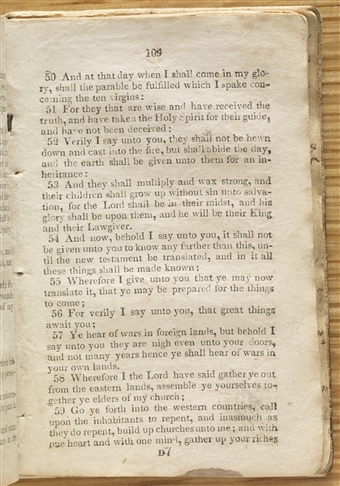 109
50 And at that day when I shall come in my glo-
ry, shall the parable be fulfilled which I spake con-
cerning the ten virgins:
51 For they that are wise and have received the
truth, and have taken the Holy Spirit for their guide,
and have not been deceived;
52 Verily I say unto you, they shall not be hewn
down and cast into the fire, but shall abide the day,
and the earth shall be given unto them for an in-
heritance:
53 And they shall multiply and wax strong, and
their children shall grow up without sin unto salva-
tion, for the Lord shall be in their midst, and his
glory shall be upon them, and he will be their King
and their Lawgiver.
54 And now, behold I say unto you, it shall not
be given unto you to know any further than this, un-
til the new testament be translated, and in it all
these things shall be made known;
55 Wherefore I give unto you that ye may now
translate it, that ye may be prepared for the things
to come;
56 For verily I say unto you, that great things
await you;
57 Ye hear of wars in foreign lands, but behold I
say unto you they are nigh even unto your doors,
and not many years hence ye shall hear of wars in
your own lands.
58 Wherefore I the Lord have said gather ye out
from the eastern lands, assemble ye yourselves to-
gether ye elders of my church;
59 Go ye forth into the western countries, call
upon the inhabitants to repent, and inasmuch as
they do repent, build up churches unto me; and with
one heart and with one mind, gather up your riches